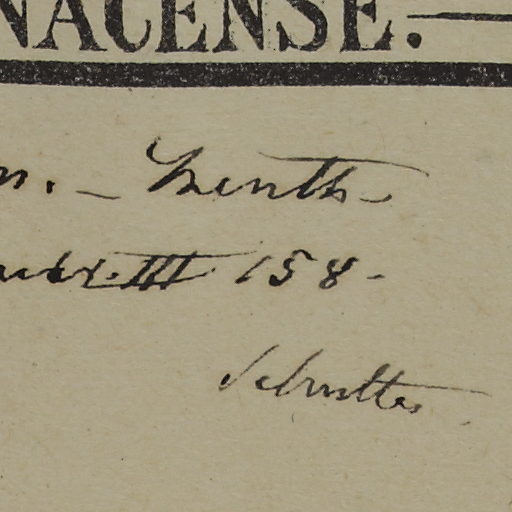 NACENSE.
m. — Benth.
III 158.
Schultes